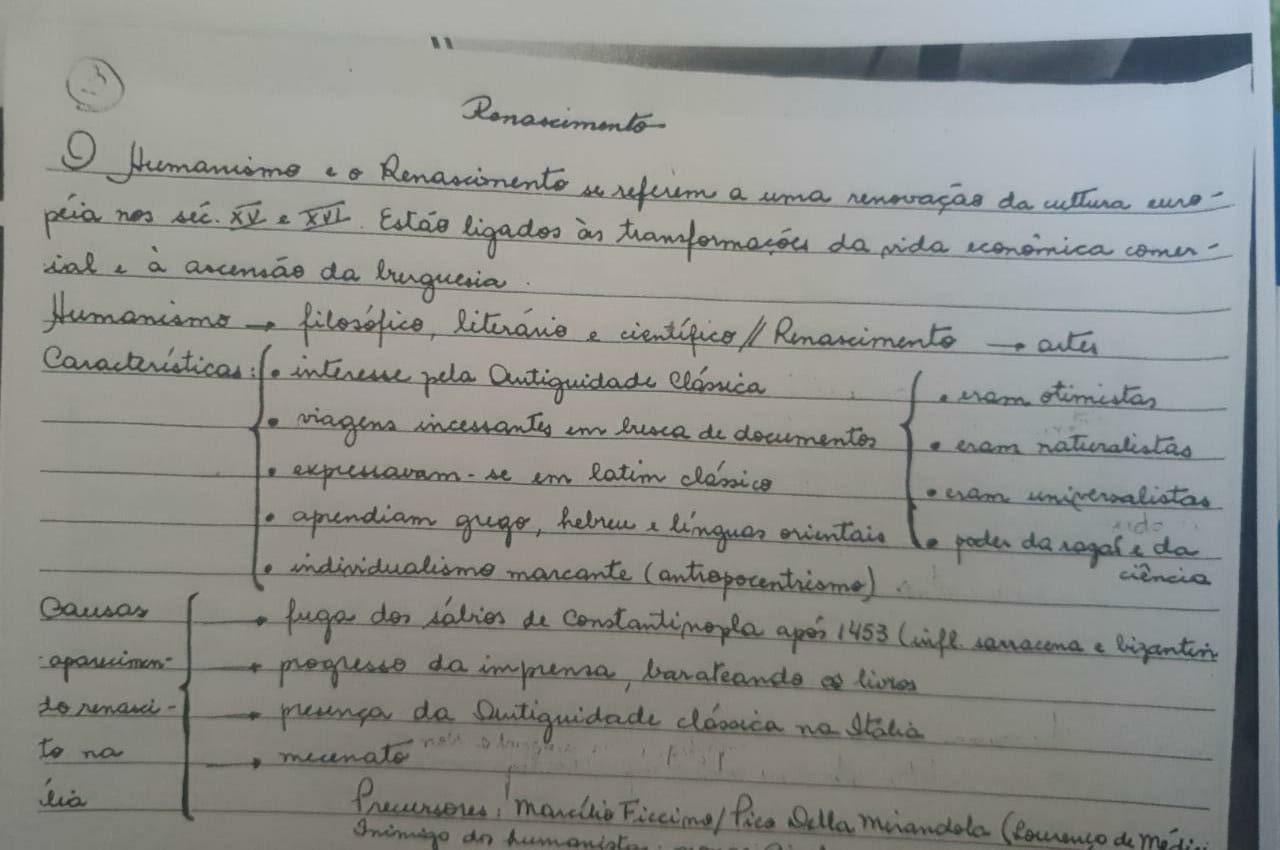 3
Renascimento
O Humanismo e o Renascimento se referem a uma renovação da cultura euro-
péia nos séc. XV e XVI. Estão ligados às transformações da vida econômica comer-
cial e à ascensão da burguesia.
Humanismo → filosófico, literário e científico // Renascimento → artes
Características:
• interesse pela Antiguidade Clássica
• viagens incessantes em busca de documentos
• expressavam-se em latim clássico
• aprendiam grego, hebreu e línguas orientais
• individualismo marcante (antropocentrismo).
• eram otimistas
• eram naturalistas
• eram universalistas
• poder da razão e da
ciência
Causas
aparecimen-
to renasci-
to na
lia
→ fuga dos sábios de Constantinopla após 1453 (infl. sarracena e bizantin
→ progresso da imprensa, barateando os livros
→ presença da Antiguidade clássica na Itália
→ mecenato
Precursores: Marcílio Ficcino/Pico Della Mirandola (Lourenço de Médici
Inimigo dos humanistas: